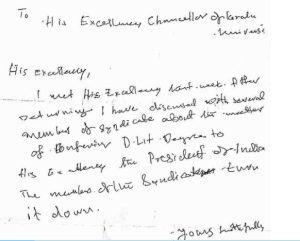 To
His Excellency Chancellor of Kerala
Universi
His Excellency,
I met His Excellency last week. After
returning I have discussed with several
member of Syndicate about the matter
of Conferring D.Lit Degree to
His Excellency the President of India
The members of the Syndicate turn
it down.
- yours faithfully